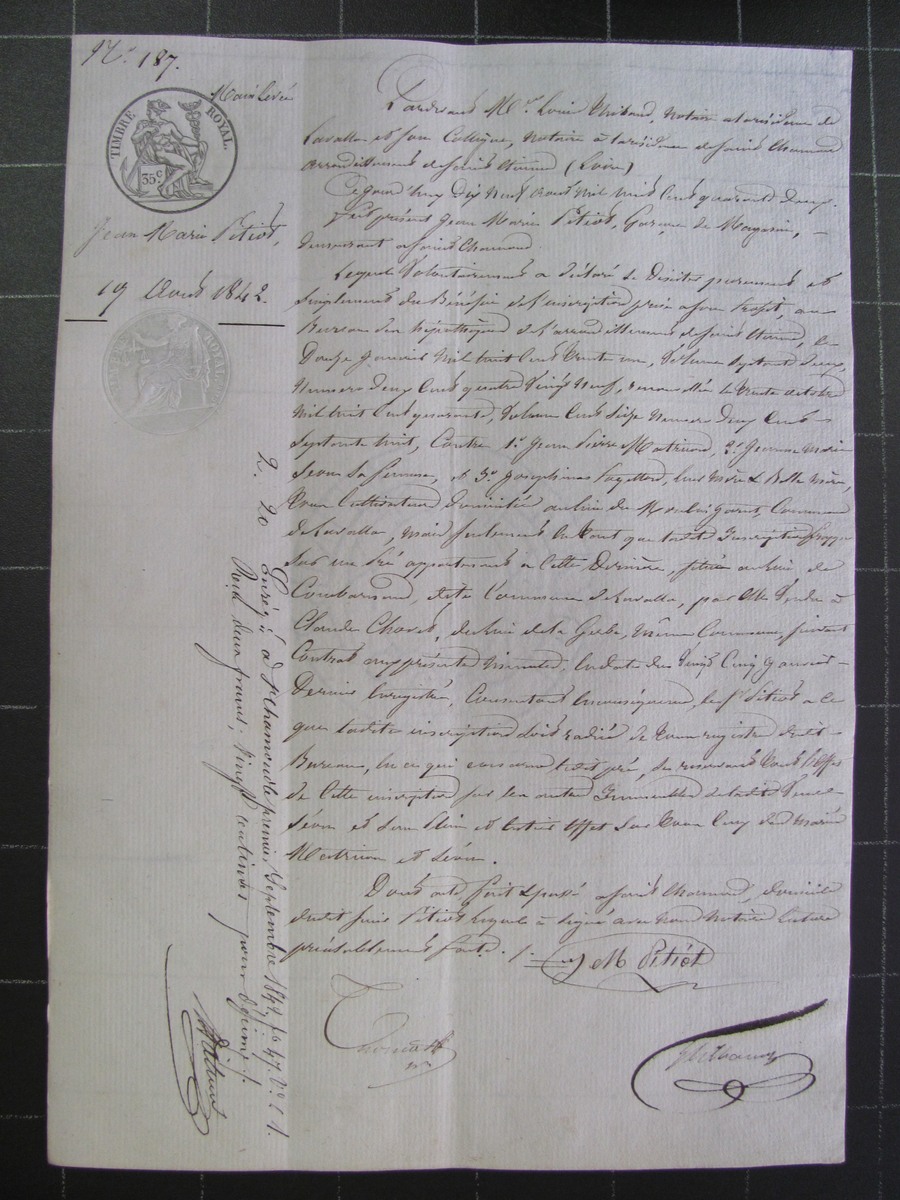 N.° 187.
Main levée
TIMBRE ROYAL.
35 c.
Jean Marie Pitiot,
19 Août 1842.
Pardevant M.e Louis Thibaud, Notaire à la résidence de
Lavalla et son Collègue, Notaire à la résidence de Saint Chamond
arrondissement de Saint Etienne (Loire)
Ce jourd'huy Dix Neuf Août Mil huit Cent quarante Deux.
fut présent Jean Marie Pitiot, Garçon de Magasin,
demeurant à Saint Chamond.
Lequel Volontairement a déclaré se Désister purement et
simplement du Bénéfice de l'inscription prise à son Profit, au
Bureau des hipothèques de l'arrondissement de Saint Etienne, le
Douze Janvier Mil huit Cent trente un, Volume Septante Deux,
Numéro Deux Cent quatre Vingt Neuf, renouvellée le trente octobre
Mil huit Cent quarante, Volume Cent Seize Numéro Deux Cent
Septante huit, Contre 1.° Jean Pierre Matricon, 2.° Jeanne Marie
Séon sa femme, et 3.° Joséphine leur Mère & Belle Mère,
tous Cultivateurs Domiciliés au lieu du Commune
de Lavalla, mais seulement En tant que ladite Inscription frappe
sur un Pré appartenant à Cette Dernière, situé au lieu de
dite Commune de Lavalla, par elle Vendu à
Claude Chavet, du lieu de la même Commune, suivant
Contrat aux présentes Minutes, En date du Vingt Cinq Janvier
Dernier Enregistré, Consentant En conséquence, le S.r Pitiot à ce
que ladite inscription soit radiée de tous registres dudit
Bureau, En ce qui concerne ledit pré, se réservant tous les effets
de Cette inscription sur les autres Immeubles de ladite Veuve
Séon et son plein et Entier Effet Sur tous Ceux des mariés
Matricon et Séon.
Dont acte fait & passé à Saint Chamond, domicile
dudit Sieur Pitiot lequel a signé avec Nous Notaires lecture
préalablement faite. /.
J M Pitiot
2. 20
Enreg.é à S.t Chamond le premier Septembre 1842, f.o 47 V.o c 1.
Reçu deux francs, Vingt centimes pour Décime /.